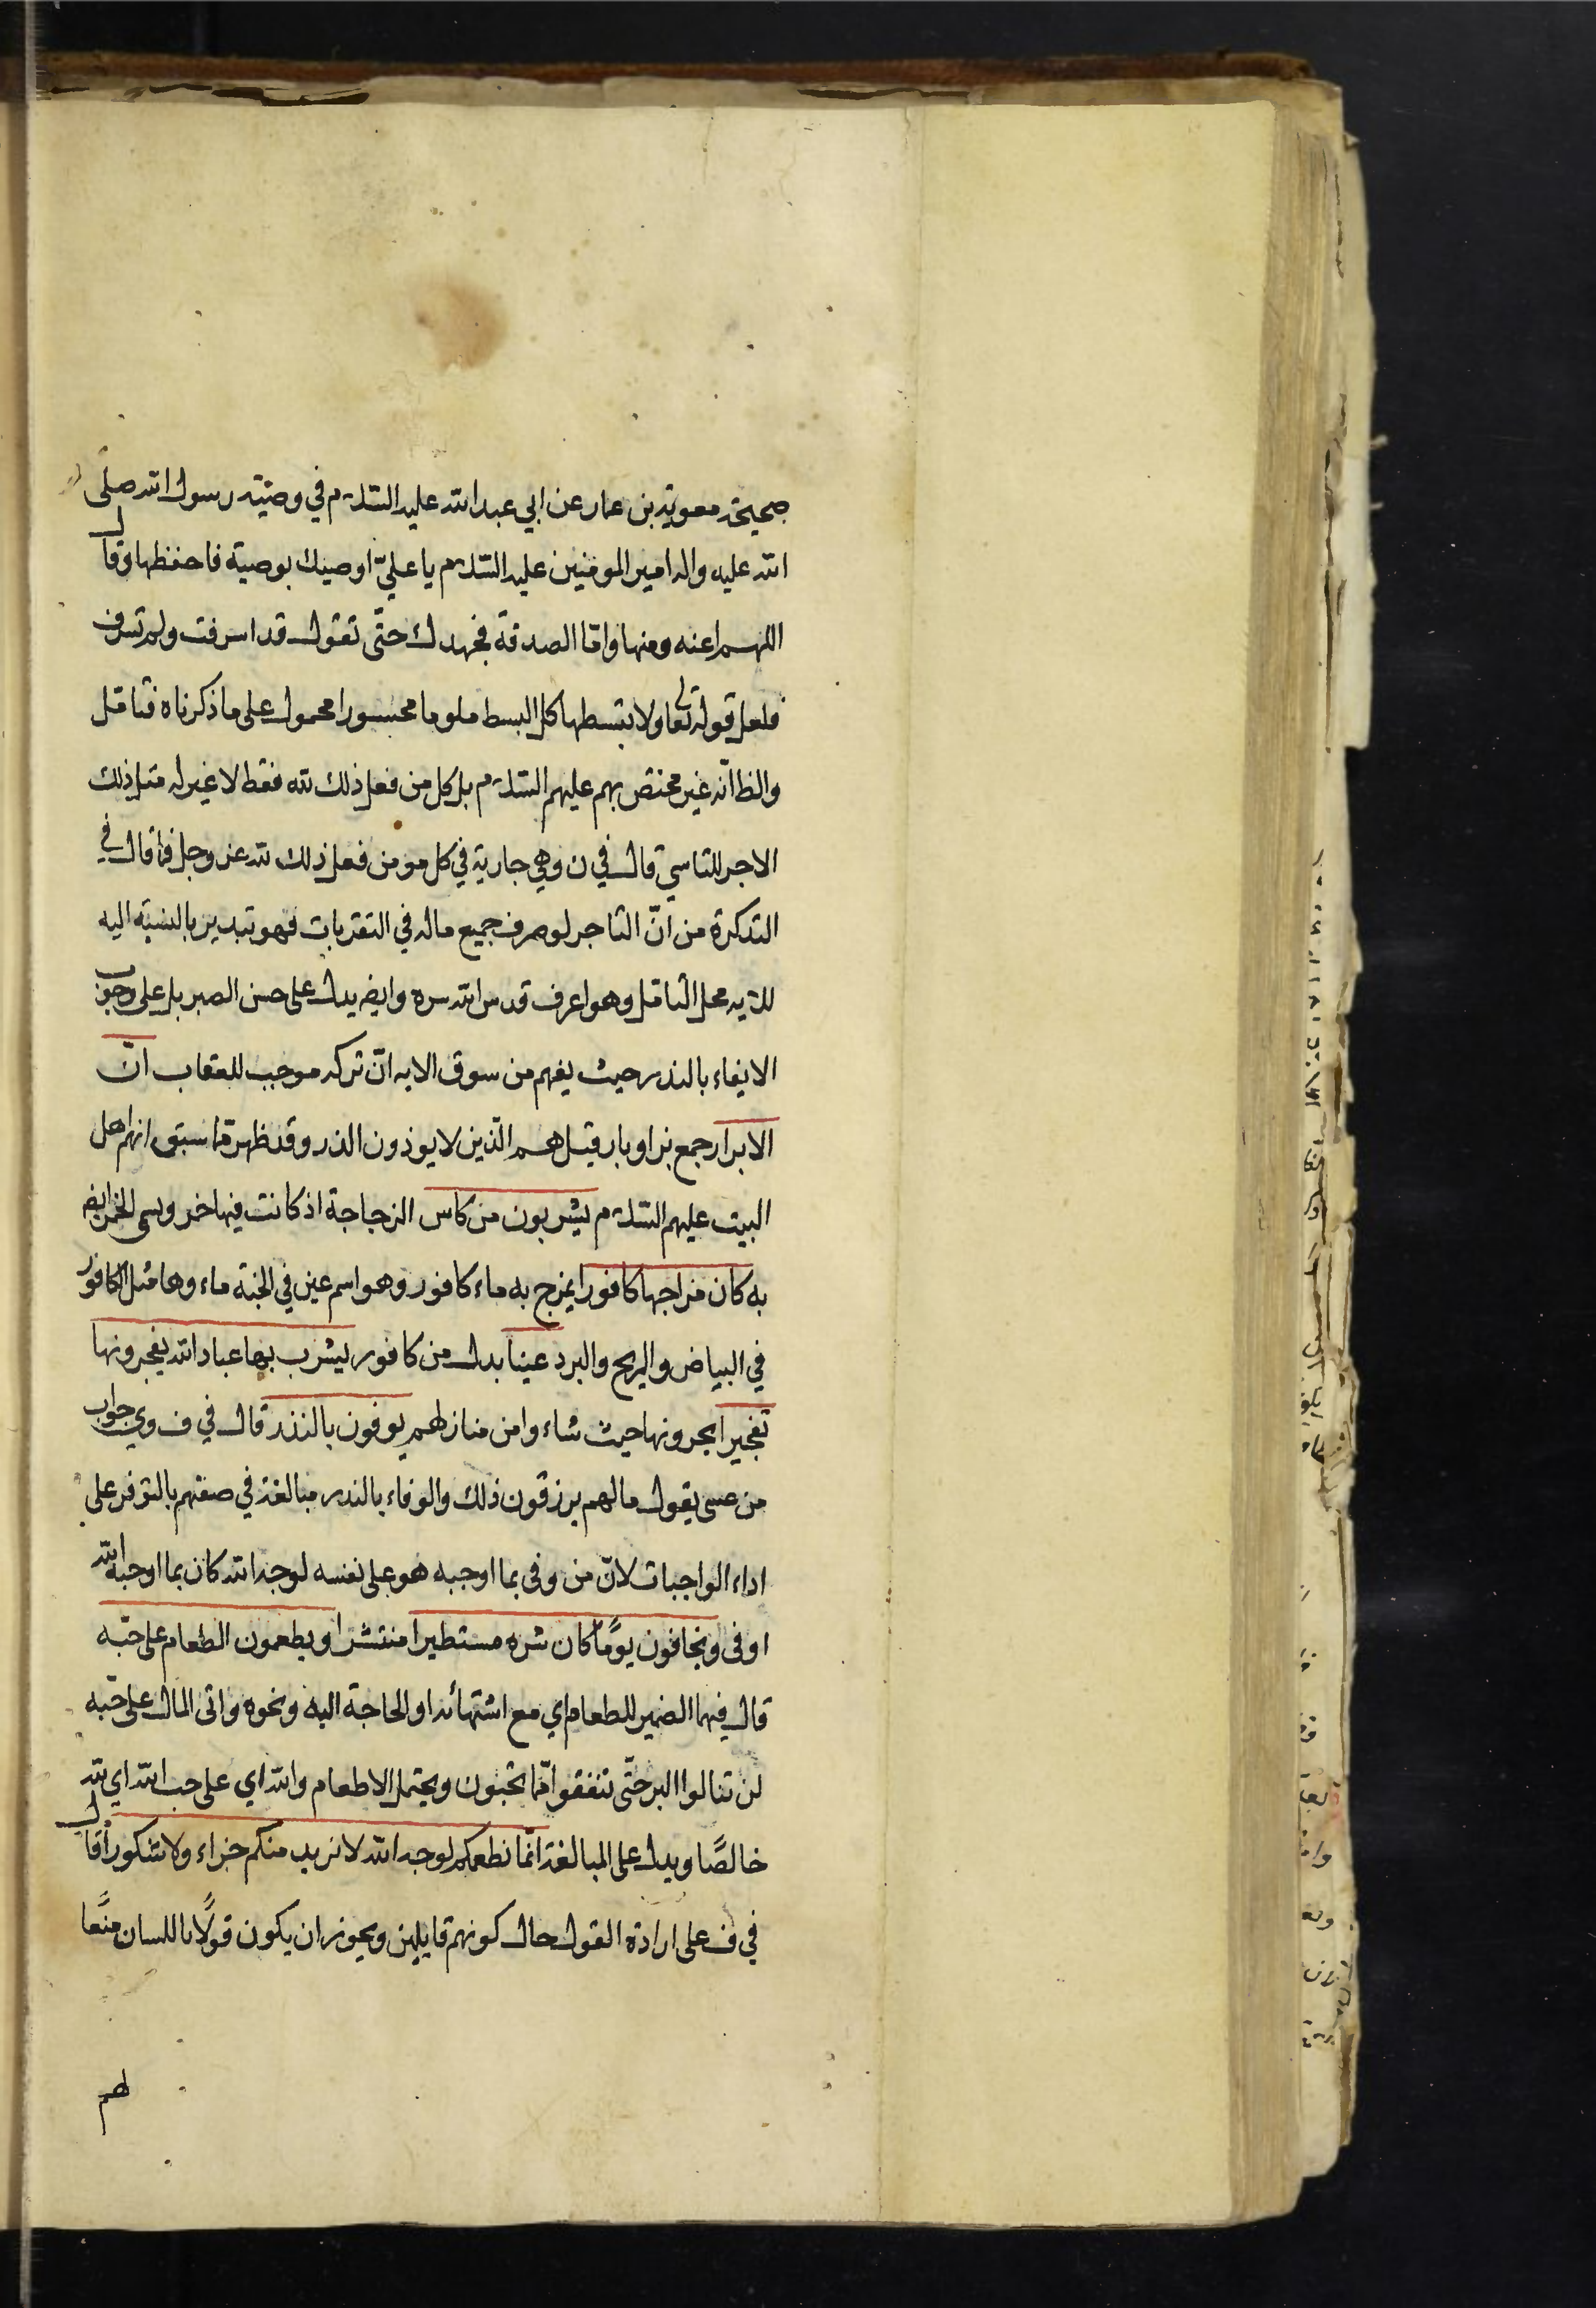 صحيحة معوية بن عمار عن ابي عبد الله عليه السلام في وصيّة رسول الله صلى
الله عليه واله امير المومنين عليه السّلام يا عليّ اوصيك بوصية فاحفظها وقال
اللهم اعنه ومنها وامّا الصدقة فجهدك حتّى تقول قد اسرفت ولم تسرف
فلعل قوله تعالى ولا بتسطها كل البسط ملوما محسورا محمول على ما ذكرناه فتامل
والظ انّه غير مختص بهم عليهم السّلام بل كل من فعل ذلك لله فقط لا غير له مثل ذلك
الاجر للتاسي قال في ن وهي جارية في كل مومن فعل ذلك لله عز وجل فما قال في
التذكرة من انّ التاجر لو صرف جميع ماله في التقربات فهو تبدير بالنسبة اليه
للايه محل التامل وهو اعرف قدس الله سره وايضه يدل على حسن الصبر بل على وجوب
الايفاء بالندر حيث يفهم من سوق الايه انّ تركه موجب للعقاب انّ
الابرار جمع بر او بار قيل هم الّذين لا يوذون الذر وقد ظهر مما سبق انهم اهل
البيت عليهم السّلام يشربون من كاس الزجاجة اذ كانت فيها خمر وسمي الخمر ايضه
به كان مزاجها كافورا يمزج به ماء كافور وهو اسم عين في الجنة ماء وها مثل الكافور
في البياض والريح والبرد عينا بدل من كافور يشرب بها عباد الله يفجرونها
تفجيرا يجرونها حيث شاء وامن منازلهم يوفون بالنذر قال في ف وي جواب
من عسى يقول ما لهم يرزقون ذلك والوفاء بالندر مبالغة في صفتهم بالتوفر على
اداء الواجبات لانّ من وفى بما اوجبه هو على نفسه لوجه الله كان بما اوجبه الله
اوفى ويخافون يوما كان شره مستطيرا منتشرا ويطعمون الطعام على حبّه
قال فيهما الضمير للطعام اي مع اشتهائه او الحاجة اليه ونحوه واتى المال على حبّه
لن تنالوا البر حتّى تنفقوا ممّا تحبون ويحتمل الاطعام والله اي على حب الله اي لله
خالصًا ويدل على المبالغة انّما نطعمكم لوجه الله لا نريد منكم جزاء ولا شكورًا قال
في ف على ارادة القول حال كونهم قايلين ويجوز ان يكون قولًا باللسان منعًا
لهم